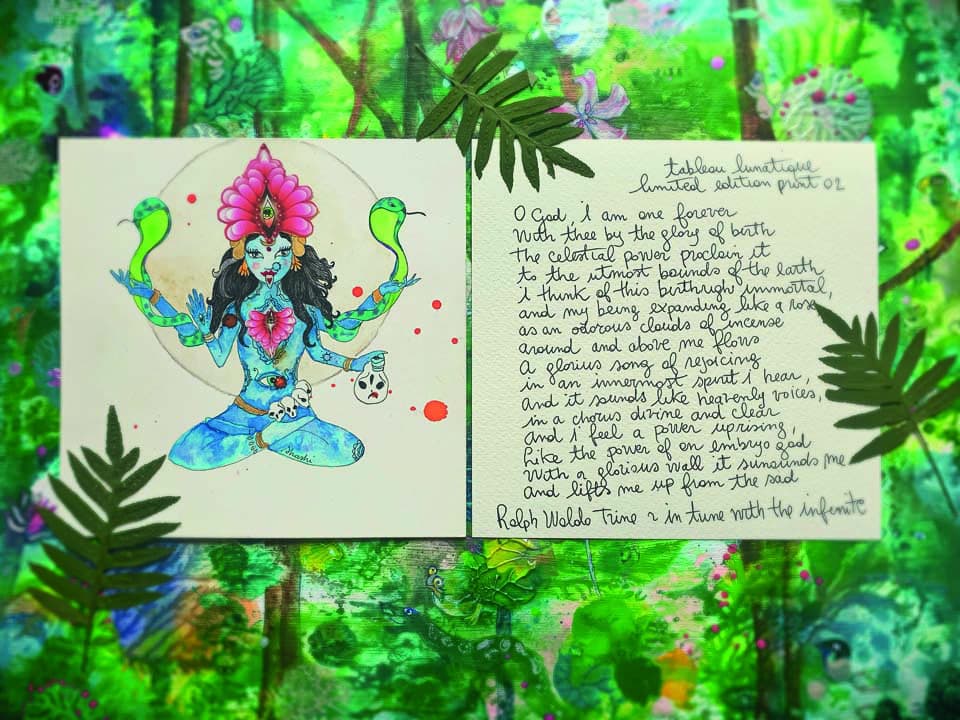 tableau lunatique
limited edition print 02
O God, i am one forever
With thee by the glory of birth
The celestial power proclain it
to the utmost bounds of the earth
i think of this birthrigh immortal,
and my being expanding like a rose
as an odorous clouds of incense
around and above me flows
A glorius song of rejoicing
in an innermost spirit i hear,
and it sounds like heavenly voices,
in a chorus divine and clear
and i feel a power uprising,
Like the power of an embryo god
With a glorious wall it surrounds me
and lifts me up from the sad
Ralph Waldo Trine in tune with the infenite